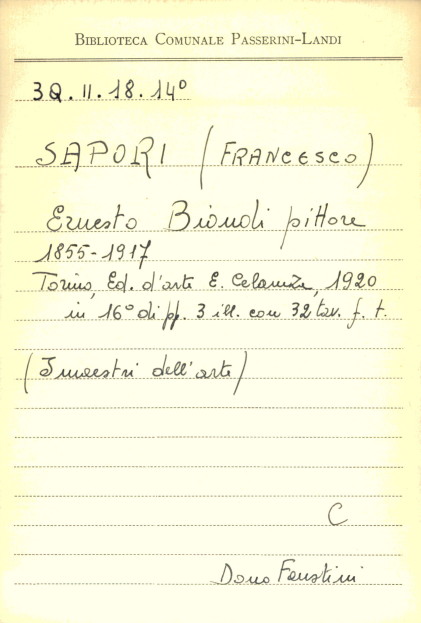 BIBLIOTECA COMUNALE PASSERINI-LANDI
3Q. II. 18. 14°
SAPORI (FRANCESCO)
Ernesto Biondi pittore
1855-1917
Torino, Ed. d'arte E. Celanza, 1920
in 16° di pp. 3 ill. con 32 tav. f. t.
(I maestri dell'arte)
C
Dono Faustini